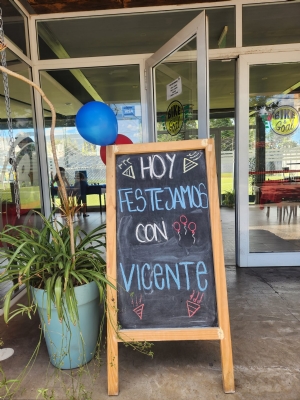 HOY
FESTEJAMOS
CON
VICENTE